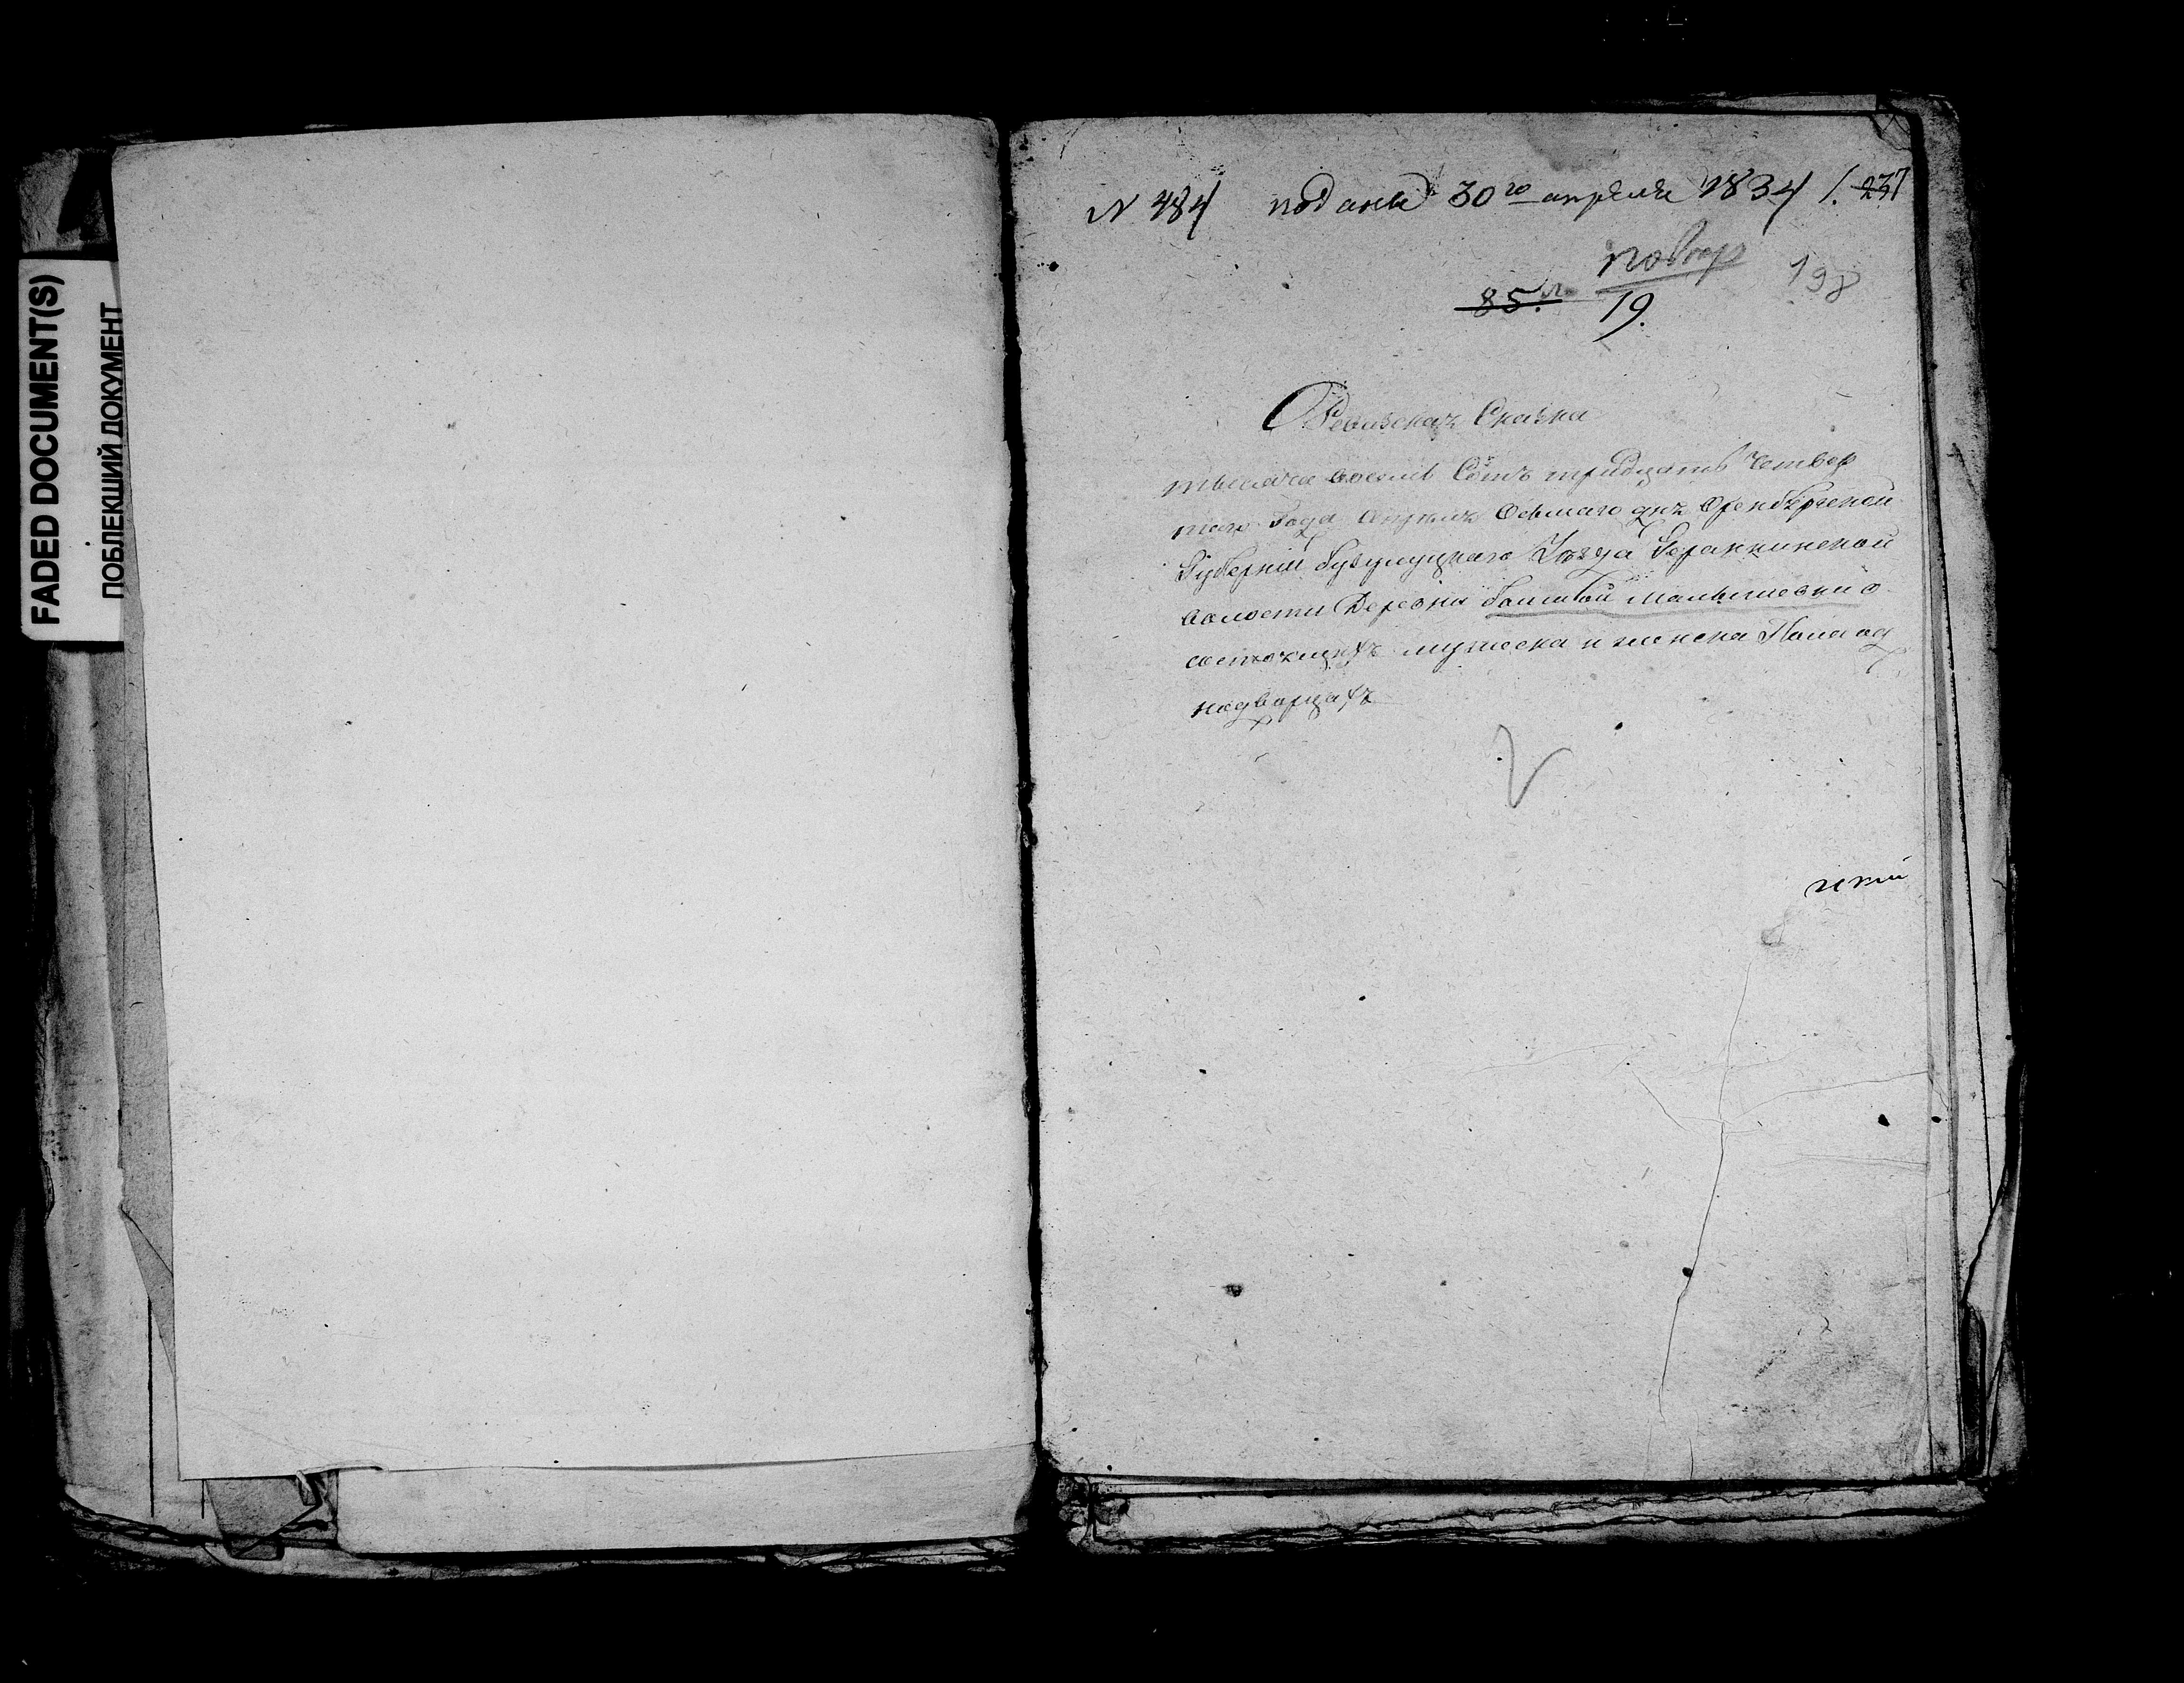 FADED DOCUMENT(S)
ПОБЛЕКШИЙ ДОКУМЕНТ
N 484 поданы 30го апреля 1834 / 237
повтор
198
85. л. 19.
Ревизская Сказка
тысяча восемь Сотъ тридцать Четвер
того Года Апреля Осьмаго дня Оренбургской
Губерніи Бузулуцкаго Уѣзда
волости Деревни Большой Малышевки о
состоящихъ мужеска и женска Пола од
надворцахъ